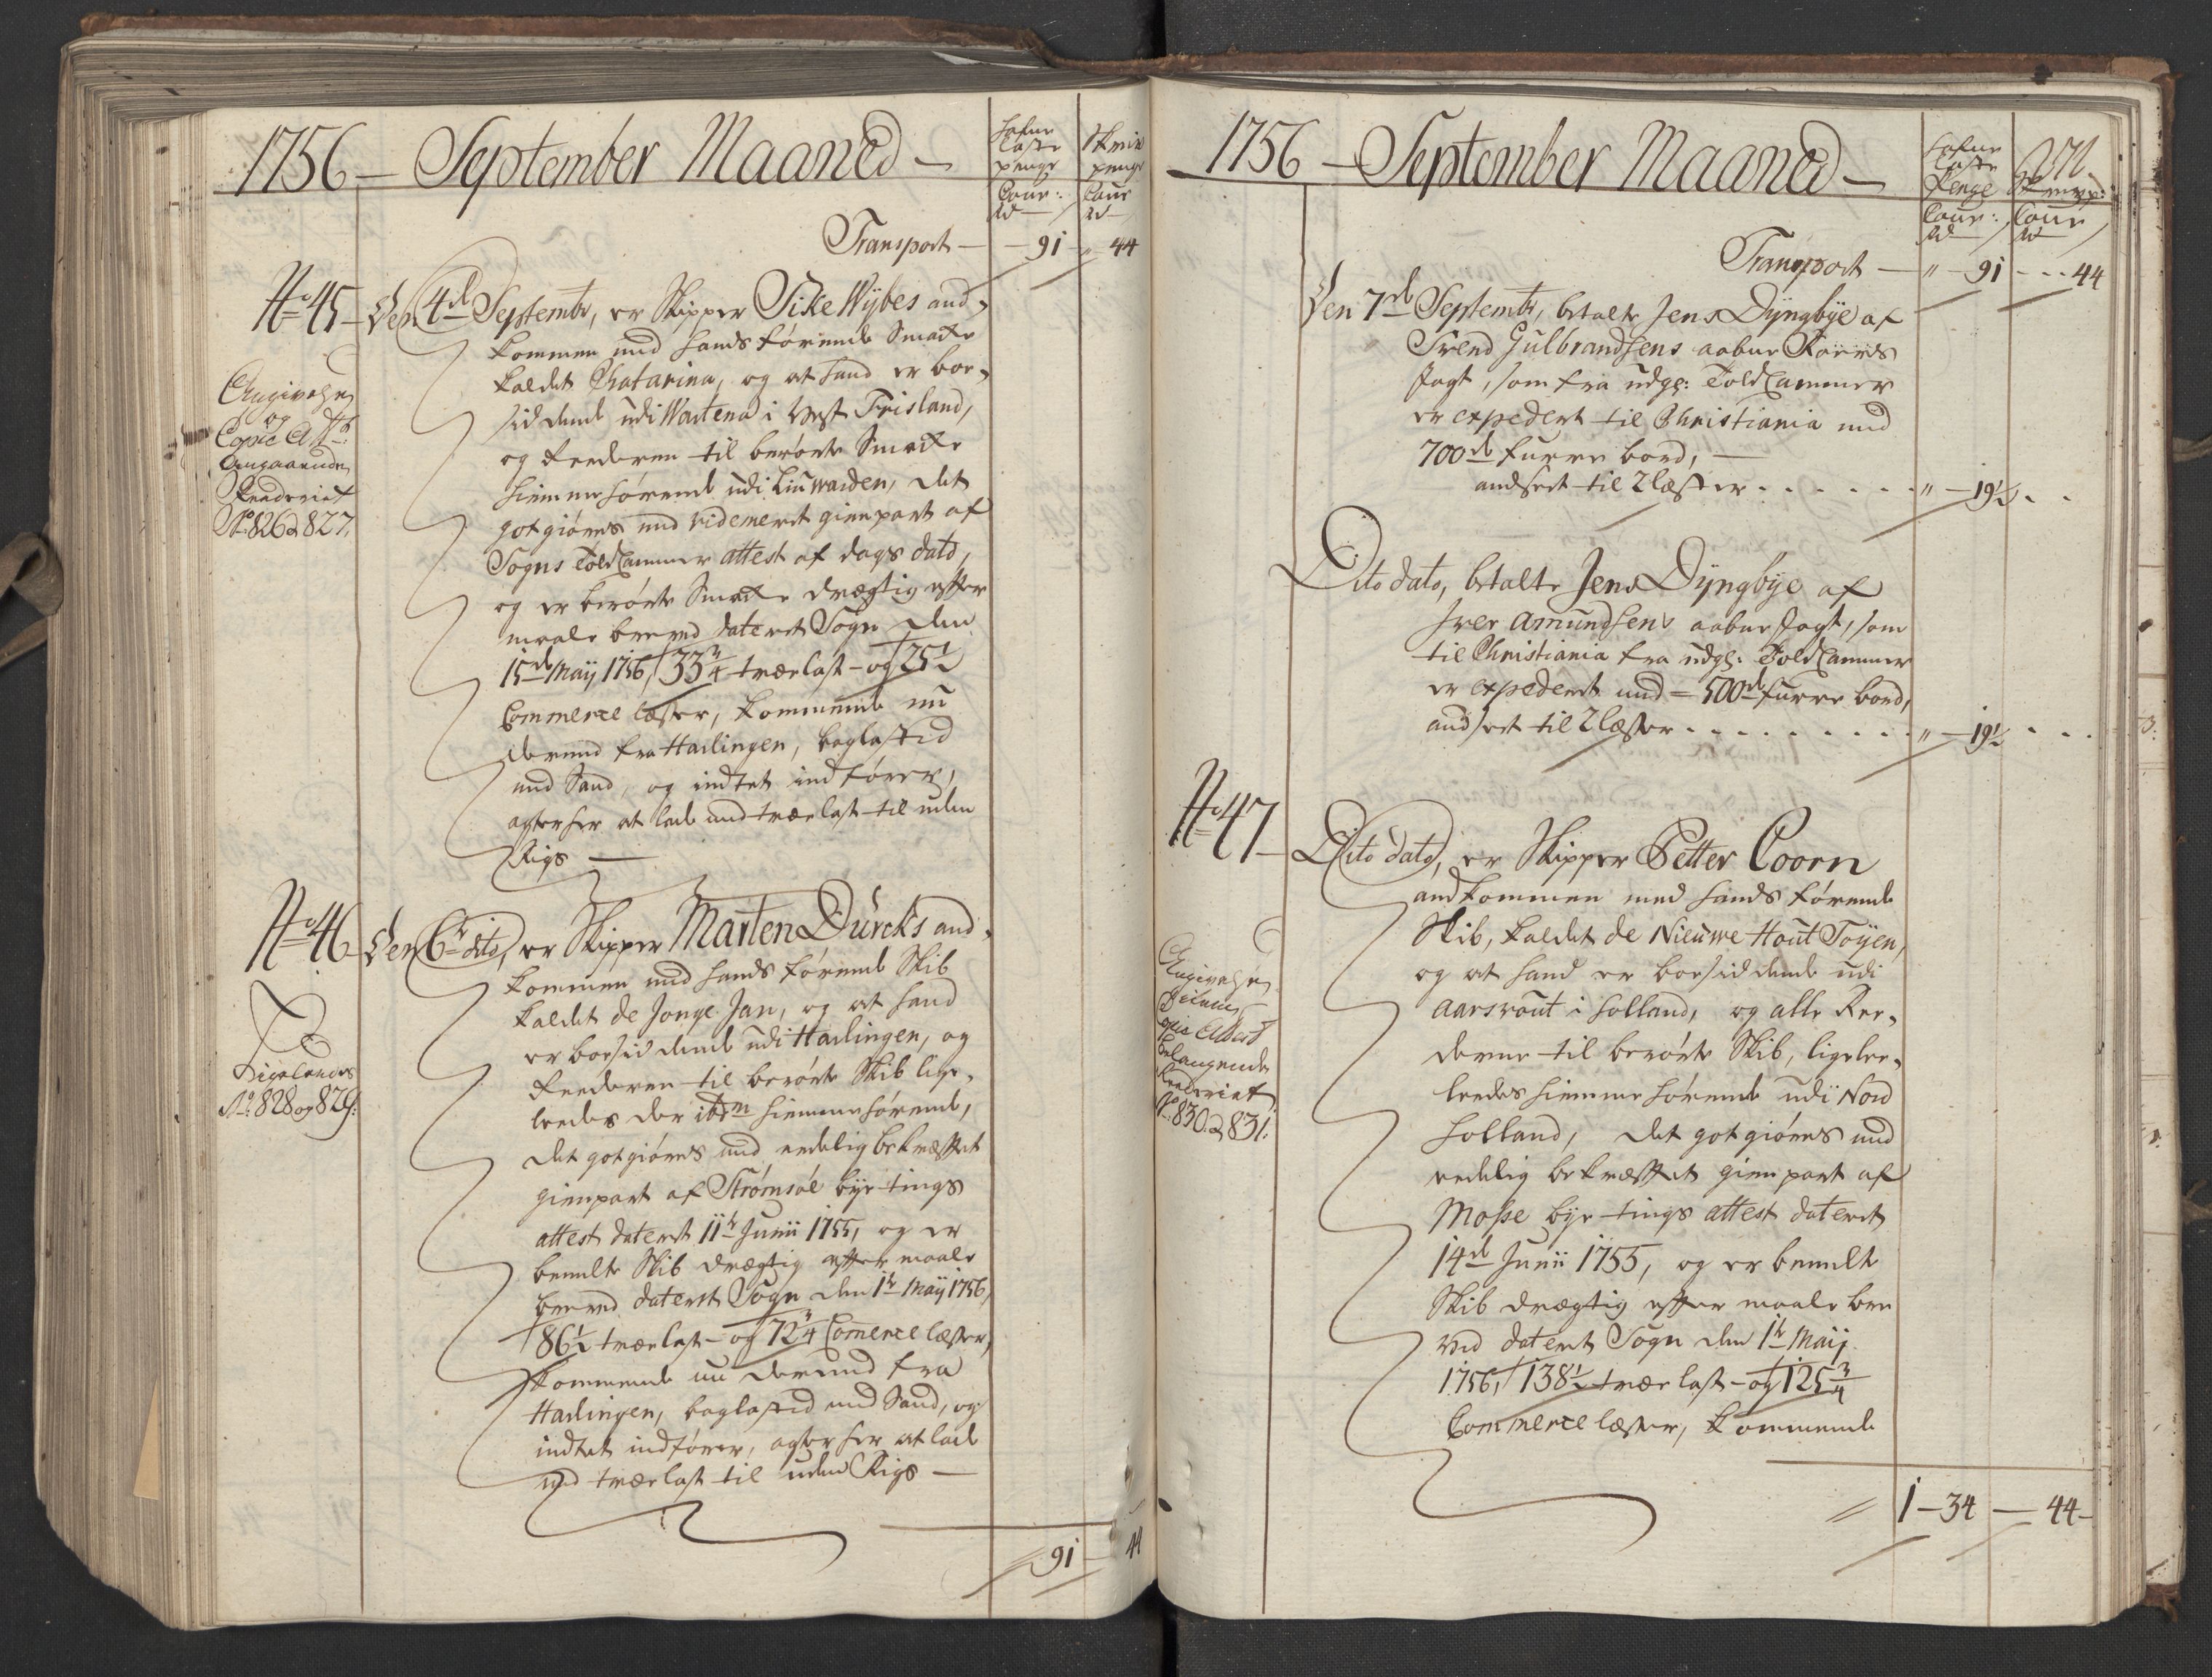 1756 – September Maaned –
Transport – – 91 – " 44
No 45 – Den 4de Septembr, er Skipper Sike Wÿbes and-
kommen med hands førende Smacke
kaldet Chatarina, og at hand er boe-
siddende udi Wartena i West Frisland,
og Reederen til berørte Smacke
hiemmehørende udi Liuwarden, det
gotgiøres med videmeret gienpart af
Sogns Told Cammer attest af dags dato,
og er berørte Smacke drægtig effter
maale breved dateret Sogn den
15de Maÿ 1756, 33 3/4 trælast – og 25 1/2
Commerce læster, kommende nu
derned fra Harlingen, baglasted
med Sand, og indtet indfører,
agter her at lade med trælast til uden
Rigs —
Angivelsen
og
Copie Att:
Angaaende
Reederiet
No 826 & 827.
No 46 Den 6te dito, er Skipper Marten Dürcks and-
kommen med hands førende Skib
kaldet de Jonge Jan, og at hand
er boesiddende udi Harlingen, og
Reederen til berørte Skib lige-
leedes der ibdm hiemmehørende,
det gotgiøres med redelig bekræfftet
gienpart af Strømsøe bÿe tings
attest dateret 11te Junii 1755, og er
bemelte Skib drægtig effter maale
breved dateret Sogn den 1te Maÿ 1756,
86 1/2 trælast – og 72 3/4 Comerce læster,
kommende nu derned fra
Harlingen, baglasted med Sand, og
indtet indfører, agter her at lade
med trælast til uden Rigs —
Ligeledes
No 828 og 829.
91 – 44
1756 – September Maaned –
Transport — " – 91 - - - 44
Den 7de Septembr, betalte Jens Dÿngbÿe af
Svend Gulbrandsens aabne Røers
Jagt, som fra udgl: Told Cammer
er expedert til Christiania med
700de furre bord, —
andsert til 2 læster . . . . . . " – 19 1/2 . .
Dito dato, betalte Jens Dÿngbÿe af
Iver Amundsens aabne Jagt, som
til Christiania fra udgl: Told Cammer
er expedert med – 500de furre bord,
andsert til 2 læster . . . . . . . . " – 19 1/2 . . .
No 47 – Dito dato, er Skipper Petter Coorn
andkommen med hands førende
Skib, kaldet de Nieuwe Hout Toÿen,
og at hand er boesiddende udi
Aarswout i Holland, og alle Ree-
derne til berørte Skib, ligelee-
leedes hiemmehørende udi Nord
Holland, det gotgiøres med
redelig bekræfftet gienpart af
Mosse bÿe tings attest dateret
14de Junii 1755, og er bemelte
Skib drægtig effter maale bre
ved dateret Sogn den 1te Maij
1756, 138 1/2 træ last – og 125 3/4
Commerce læster, kommende
Angivelsen
Copie Attest
belangende
Reederiet
No 830 & 831.
1 – 34 — 44 –